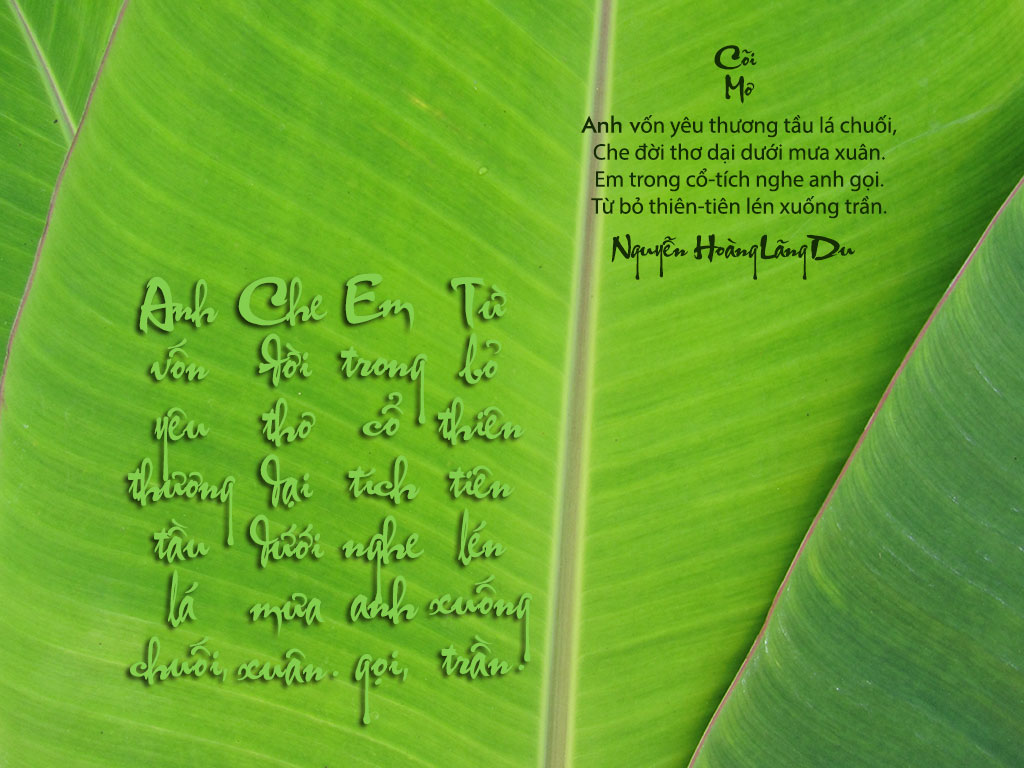 Cõi
Mơ
Anh vốn yêu thương tầu lá chuối,
Che đời thơ dại dưới mưa xuân.
Em trong cổ-tích nghe anh gọi.
Từ bỏ thiên-tiên lén xuống trần.
Nguyễn Hoàng Lãng Du
Anh Che Em Từ
vốn đời trong bỏ
yêu thơ cổ thiên
thương dại tích tiên
tầu dưới nghe lén
lá mưa anh xuống
chuối, xuân. gọi, trần.